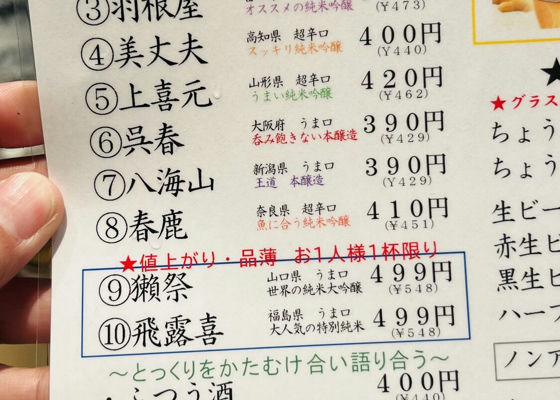 ③羽根屋
オススメの純米吟醸
(¥473)
④美丈夫
高知県 超辛口
スッキリ純米吟醸
400円
(¥440)
⑤上喜元
山形県 超辛口
うまい純米吟醸
420円
(¥462)
⑥呉春
大阪府 うま口
呑み飽きない本醸造
390円
(¥429)
⑦八海山
新潟県 うま口
王道 本醸造
390円
(¥429)
⑧春鹿
奈良県 超辛口
魚に合う純米吟醸
410円
(¥451)
★値上がり・品薄 お1人様1杯限り
⑨獺祭
山口県 うま口
世界の純米大吟醸
499円
(¥548)
⑩飛露喜
福島県 うま口
大人気の特別純米
499円
(¥548)
～とっくりをかたむけ合い語り合う～
・ふつう酒
400円
(¥440)
★
★グラス
ちょう
ちょう
生ビー
赤生ビ
黒生ビ
ハーフ
ノンア